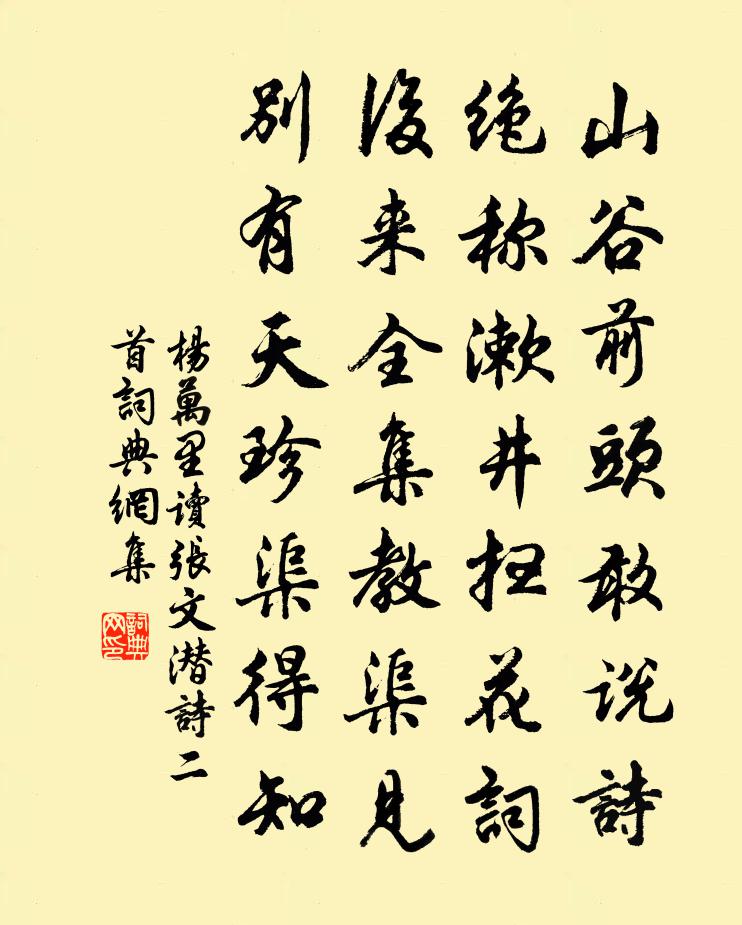 山谷前頭敢説詩
絶称漱井掃花詞
後来全集教渠見
別有天珍渠得知
楊萬里讀張文潜詩二
首詞典網集
詞典
网印